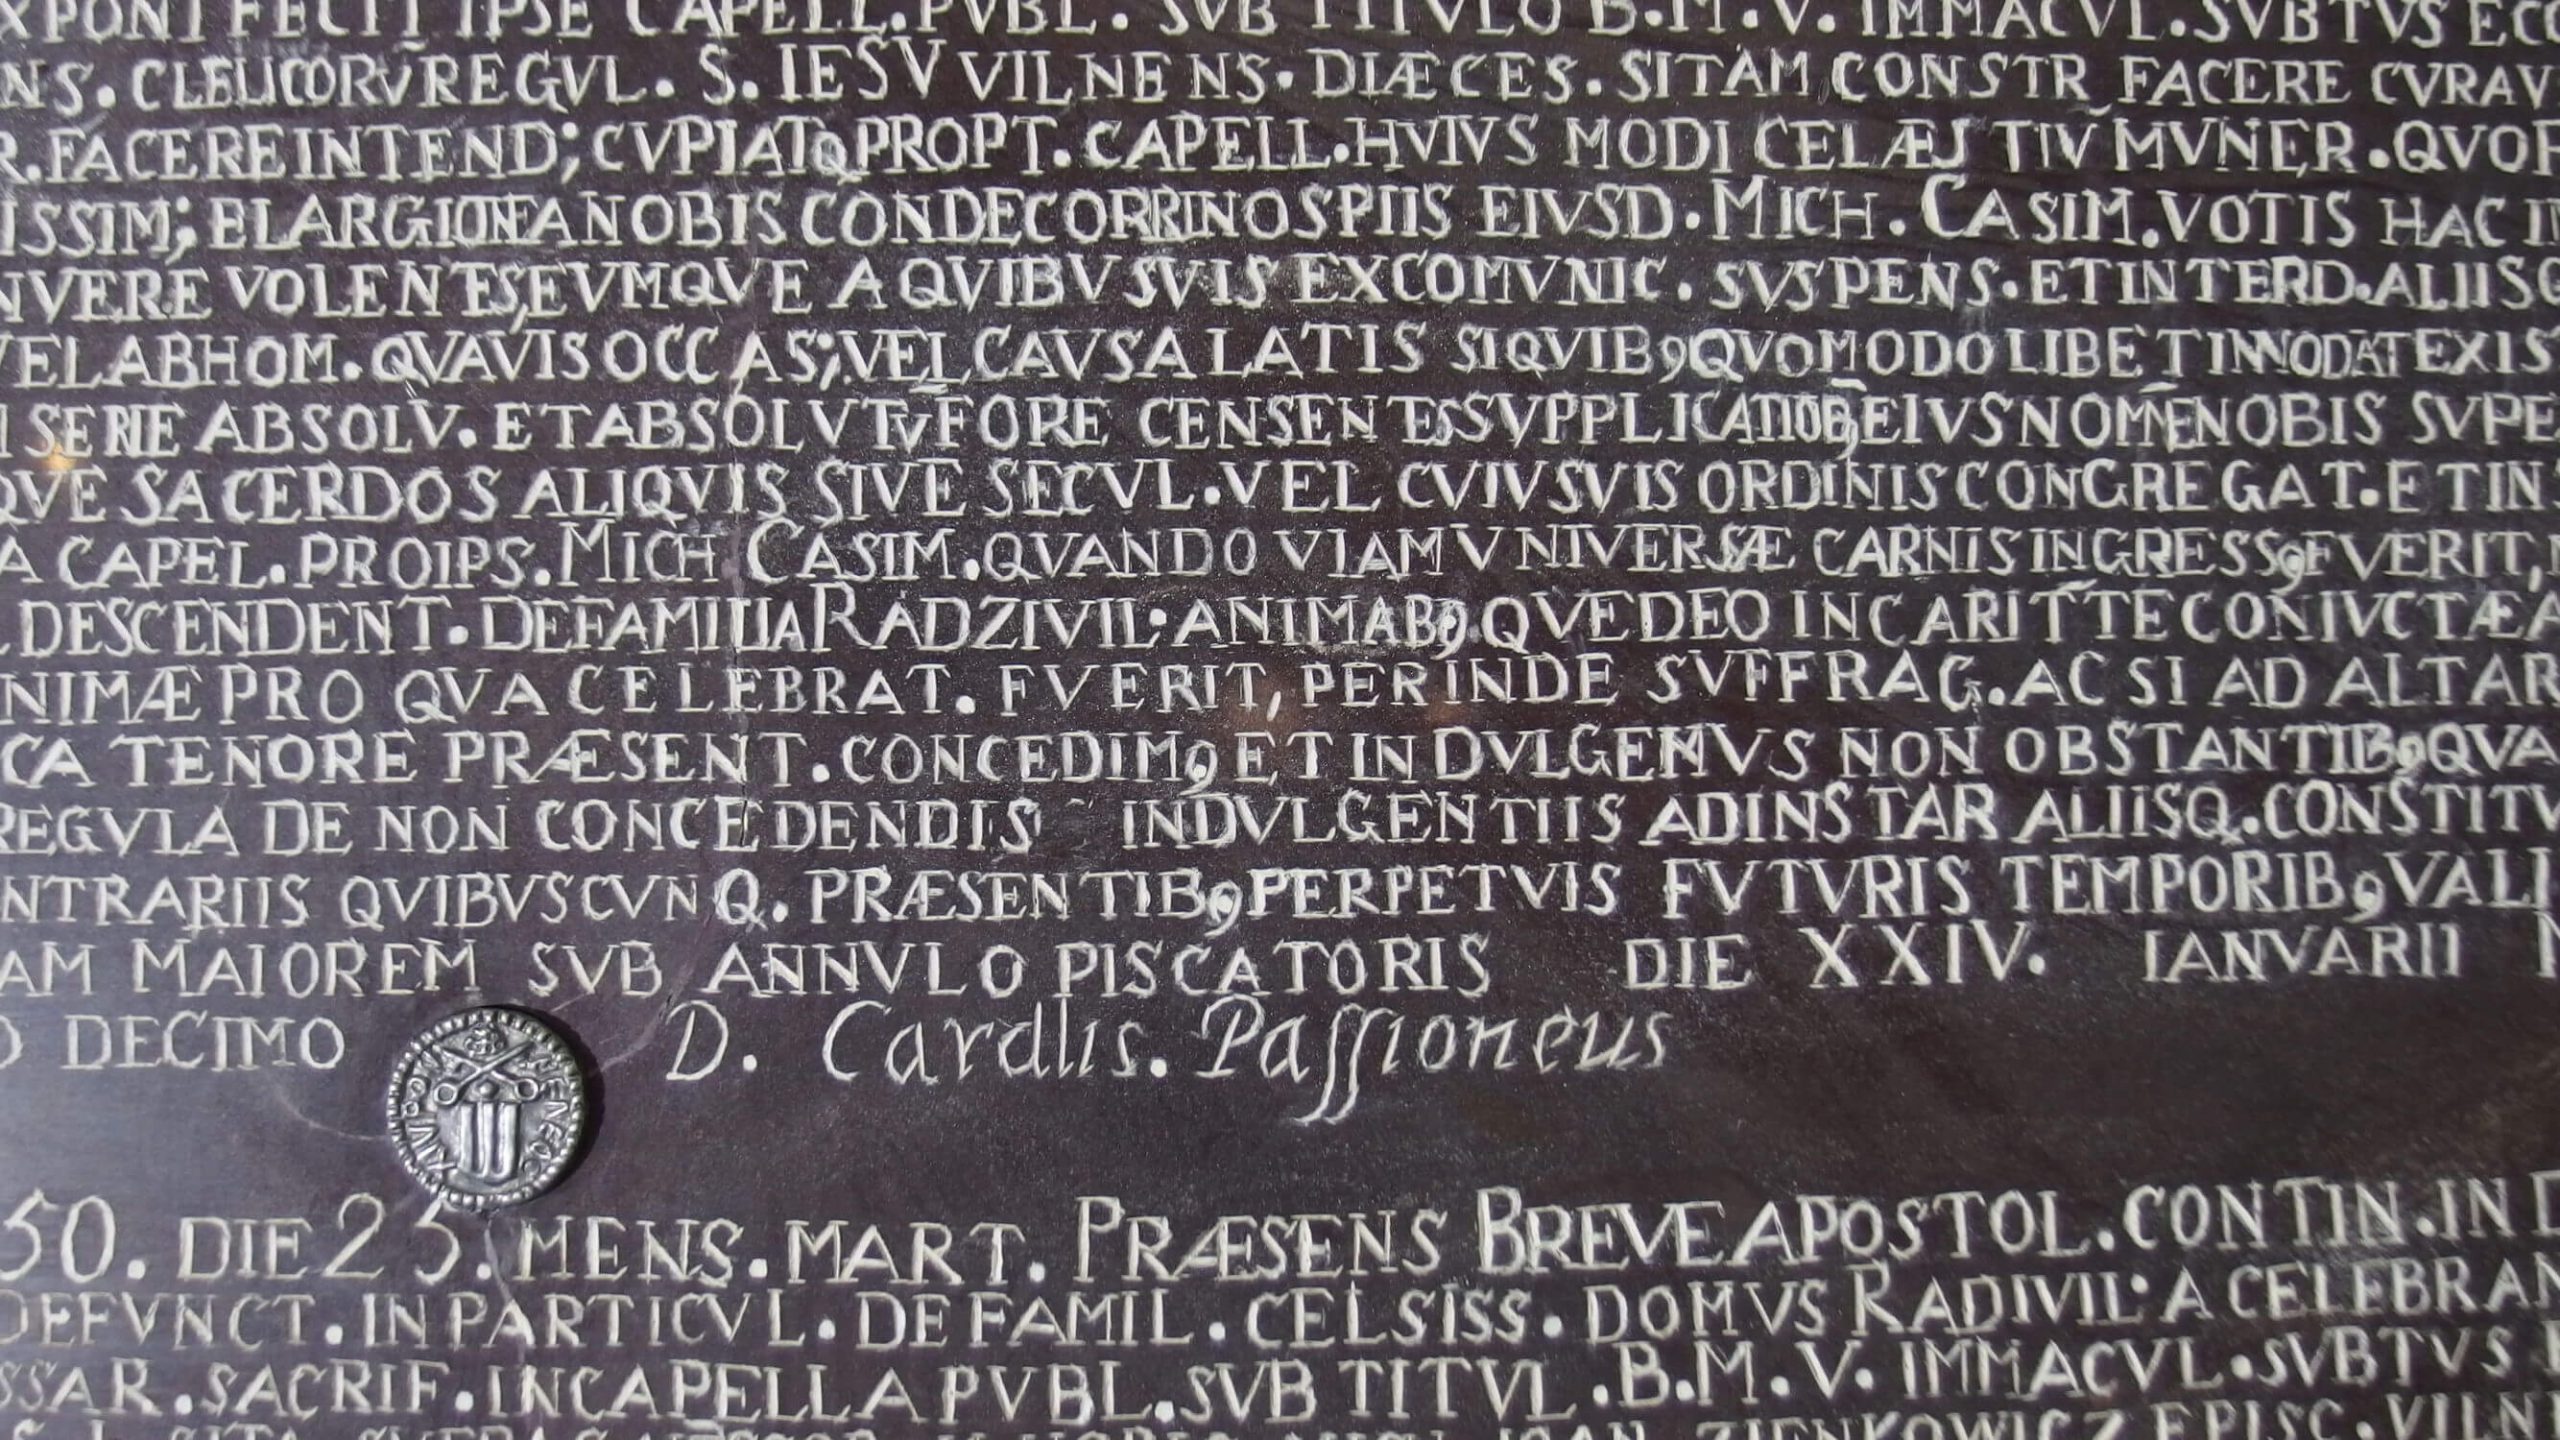 XPONI FECIT IPSE CAPELL. PVBL. SVB TITVLO B.M.V. IMMACVL. SVBTVS
NS. CLERICORV̄ REGVL. S. IESV VILNENS. DIÆCES. SITAM CONSTR FACERE CVRAV
R. FACERE INTEND; CVPIATQ PROPT. CAPELL. HVIVS MODI CELÆSTIV̄ MVNER. QVOR
ISSIM; ELARGIONE A NOBIS CONDECORRI NOS PIIS EIVSD. MICH. CASIM. VOTIS HAC IN
NVERE VOLENTES, EVMQVE A QVIBVSVIS EXCOMVNIC. SVSPENS. ET INTERD. ALIISQ
VEL AB HOM. QVAVIS OCCAS; VEL CAVSA LATIS SIQVIB9 QVOMODOLIBET INNODAT EXIS
I SERIE ABSOLV. ET ABSOLVTV̄ FORE CENSENTES SVPPLICATIOB9 EIVS NOMINE NOBIS SVPE
QVE SACERDOS ALIQVIS SIVE SECVL. VEL CVIVSVIS ORDINIS CONGREGAT. ET IN
A CAPEL. PRO IPS. MICH CASIM. QVANDO VIAM VNIVERSÆ CARNIS INGRESS9 FVERIT,
DESCENDENT. DE FAMILIA RADZIVIL. ANIMAB9 QVE DEO IN CARITTE CONIVCTÆ A
NIMÆ PRO QVA CELEBRAT. FVERIT, PERINDE SVFFRAG. AC SI AD ALTAR
CA TENORE PRÆSENT. CONCEDIM9 ET INDVLGEMVS NON OBSTANTIB9 QVA
REGVLA DE NON CONCEDENDIS INDVLGENTIIS AD INSTAR ALIISQ. CONSTITV
NTRARIIS QVIBVSCVNQ. PRÆSENTIB9 PERPETVIS FVTVRIS TEMPORIB9 VALI
AM MAIOREM SVB ANNVLO PISCATORIS DIE XXIV. IANVARII
O DECIMO D. Cardlis. Paſſioneus
50. DIE 25. MENS. MART. PRÆSENS BREVE APOSTOL. CONTIN. IN
DEFVNCT. IN PARTICVL. DE FAMIL. CELSISS. DOMVS RADIVIL. A CELEBRAN
SSAR. SACRIF. IN CAPELLA PVBL. SVB TITVL. B.M.V. IMMACVL. SVBTVS
IOAN ZIENKOWICZ EPISC. VILN